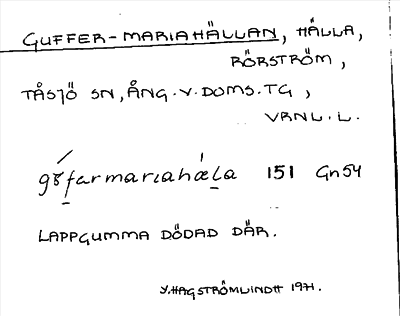 GUFFER-MARIAHÄLLAN, HÄLLA,
RÖRSTRÖM,
TÅSJÖ SN, ÅNG. V. DOMS. TG,
VRNL. L.
151 Gn54
LAPPGUMMA DÖDAD DÄR.
Y. HAGSTRÖMLINDH 1971.